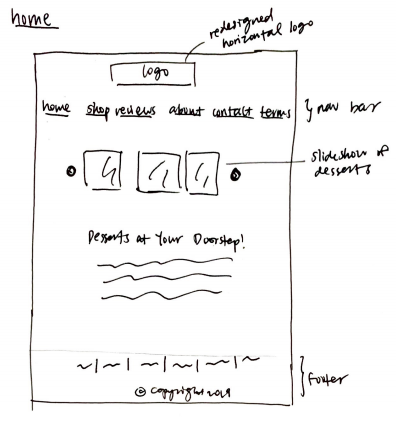 home
redesigned
horizontal logo
logo
home shop reviews about contact terms
} nav bar
slideshow of
desserts
Desserts at Your Doorstep!
footer
© copyright 2019